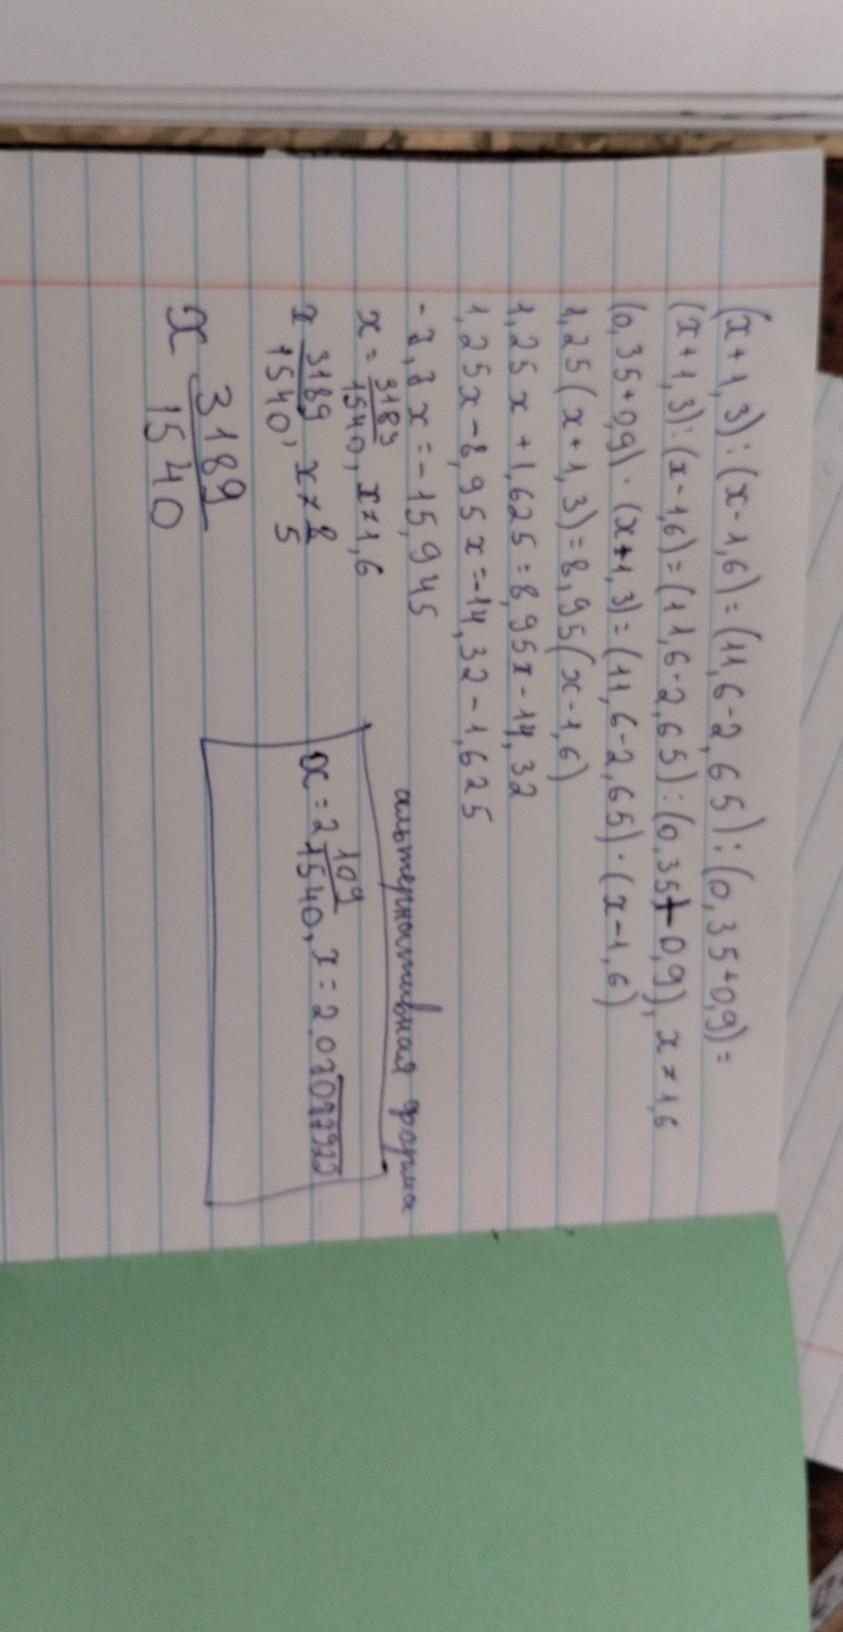 (x+1,3):(x-1,6)=(11,6-2,65):(0,35+0,9)=
(x+1,3):(x-1,6)=(11,6-2,65):(0,35+0,9), x≠1,6
(0,35+0,9)·(x+1,3)=(11,6-2,65)·(x-1,6)
1,25(x+1,3)=8,95(x-1,6)
1,25x+1,625=8,95x-14,32
1,25x-8,95x=-14,32-1,625
-7,7x=-15,945
x=3189/1540, x≠1,6
x 3189/1540, x≠8/5
x 3189/1540
альтернативная форма
x=2 109/1540, x=2,07